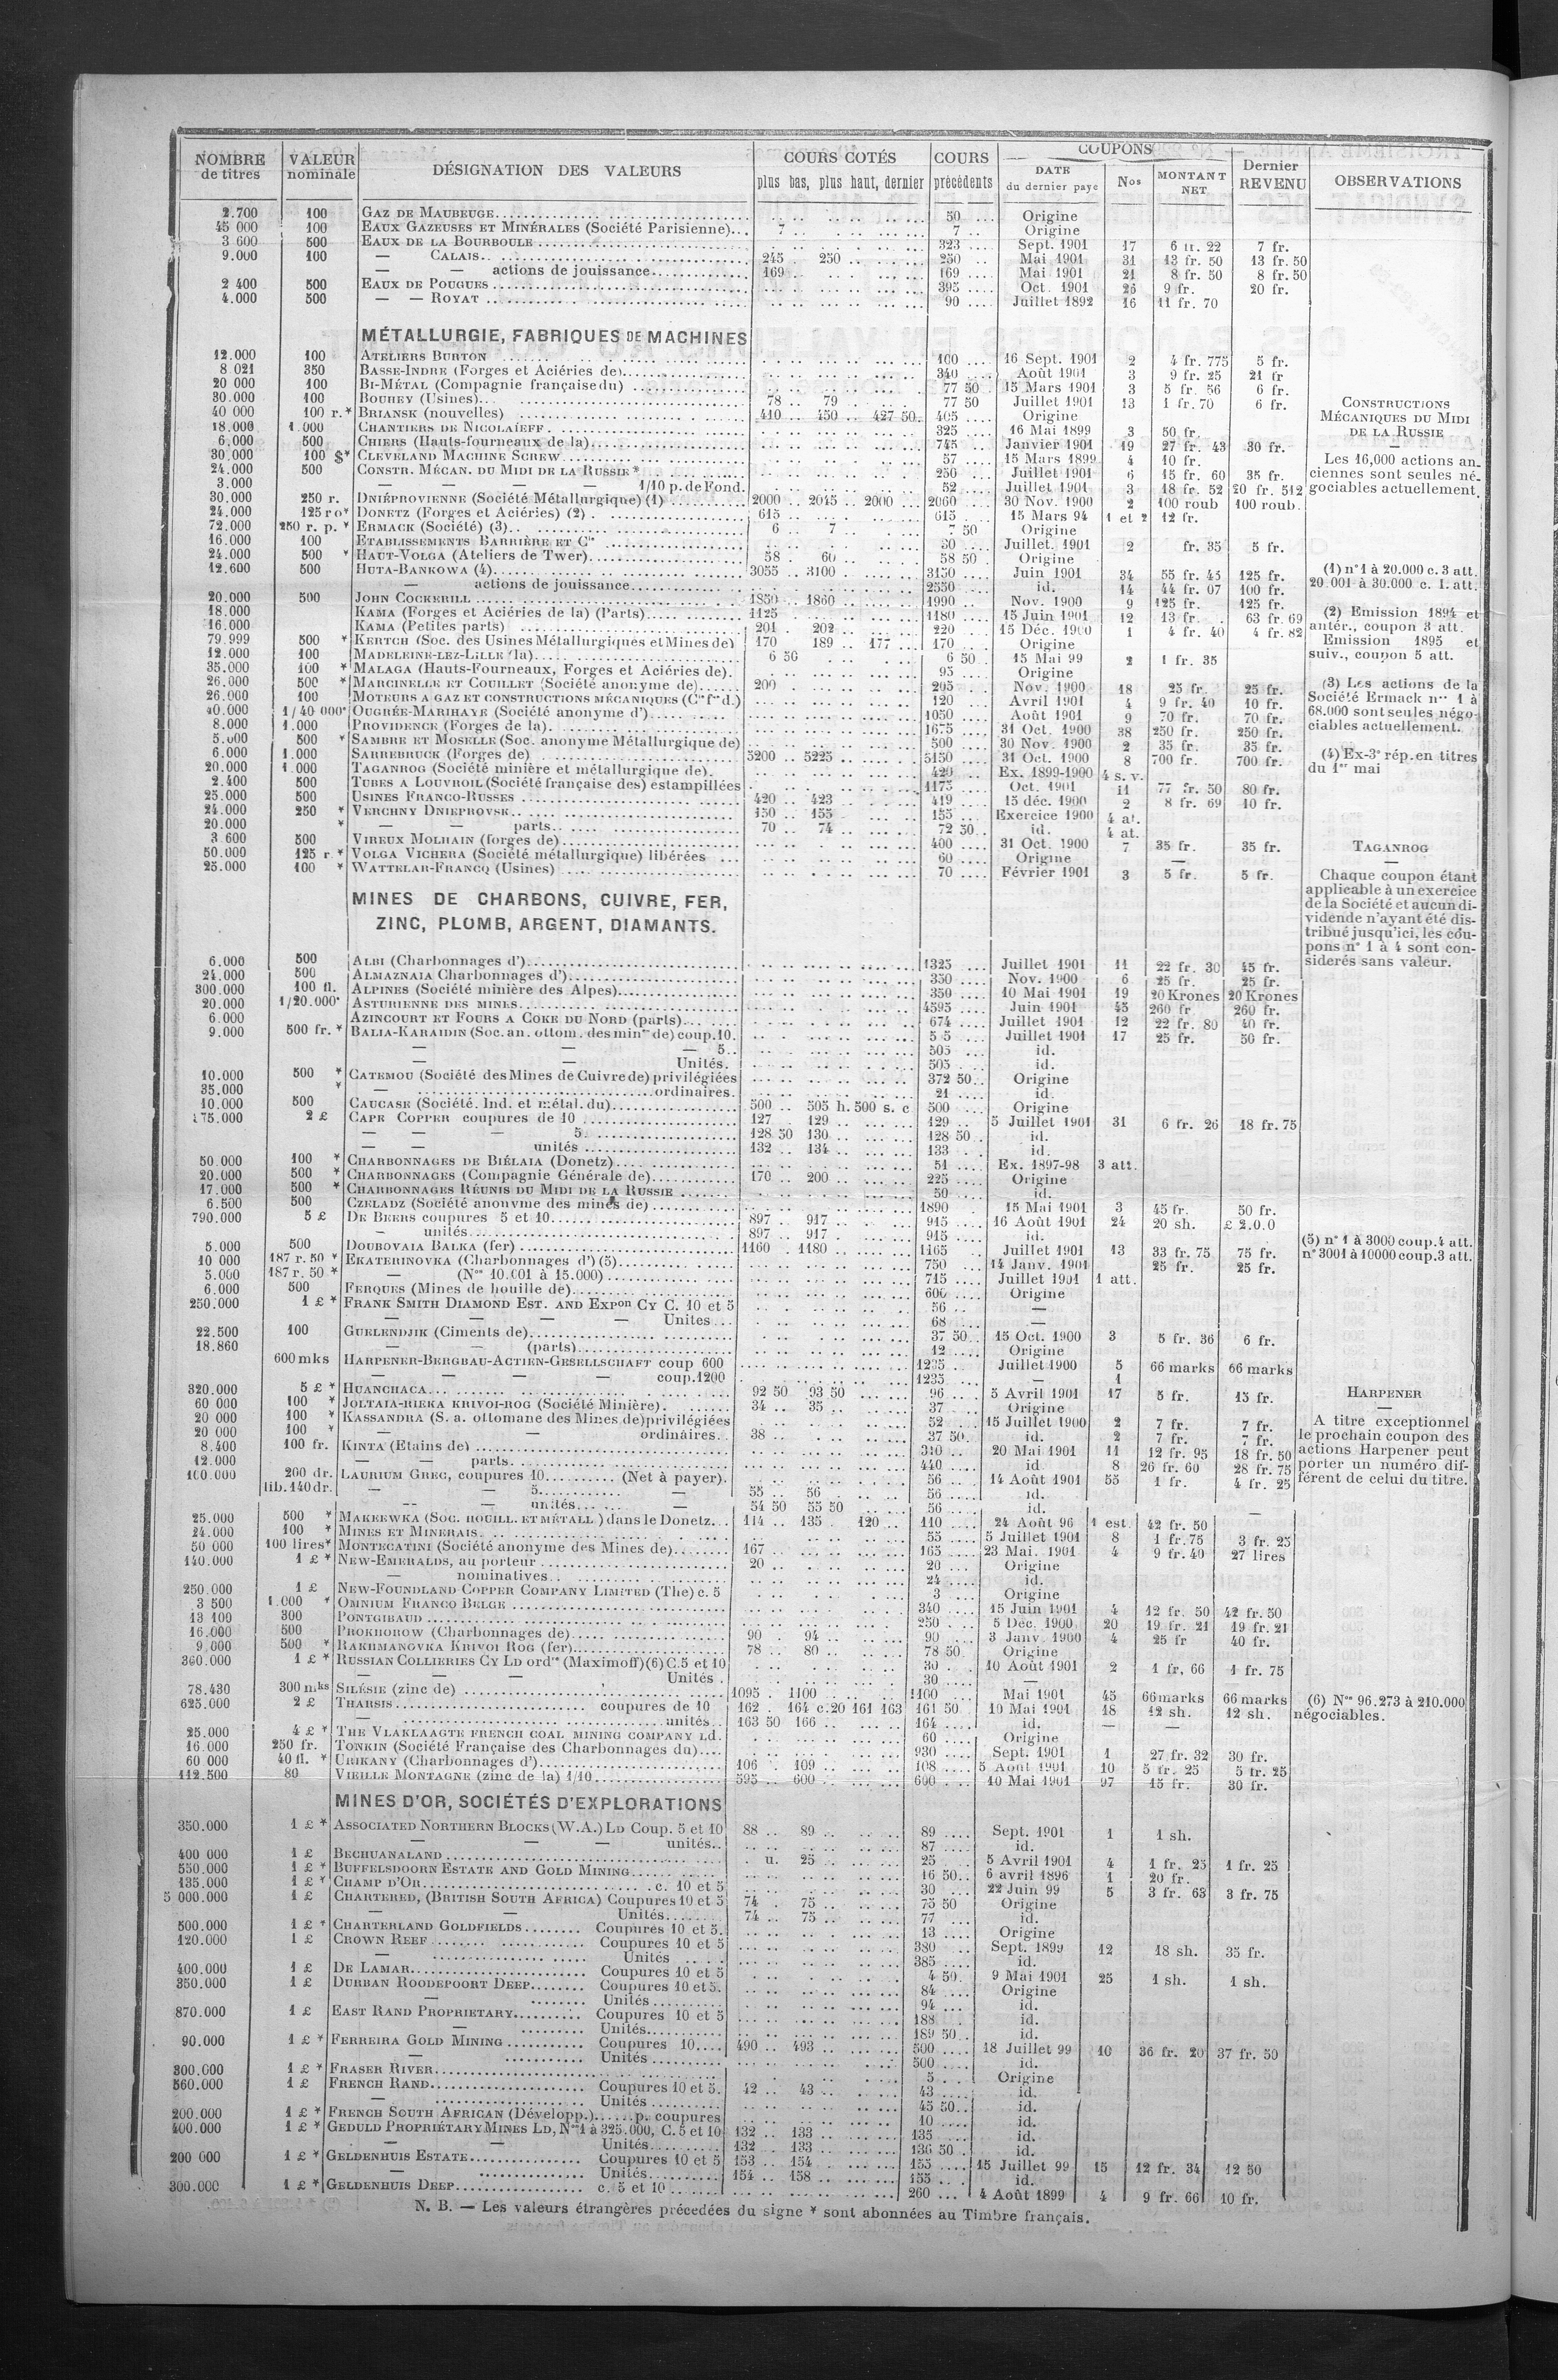 NOMBRE de titres | VALEUR nominale | DÉSIGNATION DES VALEURS | COURS COTÉS plus bas, plus haut, dernier | COURS précédents | COUPONS DATE du dernier paye | Nos | MONTANT NET | Dernier REVENU | OBSERVATIONS
2.700 100 GAZ DE MAUBEUGE 50 Origine
45 000 100 EAUX GAZEUSES ET MINÉRALES (Société Parisienne) 7 7 Origine
3 600 500 EAUX DE LA BOURBOULE 323 Sept. 1901 17 6 fr. 22 7 fr.
9.000 100 — CALAIS 245 250 250 Mai 1901 31 13 fr. 50 13 fr. 50
— — actions de jouissance 169 169 Mai 1901 21 8 fr. 50 8 fr. 50
2 400 500 EAUX DE POUGUES 395 Oct. 1901 26 9 fr. 20 fr.
4.000 500 — — ROYAT 90 Juillet 1892 16 11 fr. 70
MÉTALLURGIE, FABRIQUES DE MACHINES
12.000 100 ATELIERS BURTON 100 16 Sept. 1901 2 4 fr. 775 5 fr.
8 021 350 BASSE-INDRE (Forges et Aciéries de) 340 Août 1901 3 9 fr. 25 21 fr
20 000 100 BI-MÉTAL (Compagnie française du) 77 50 15 Mars 1901 3 5 fr. 56 6 fr.
30.000 100 BOUHEY (Usines) 78 79 77 50 Juillet 1901 13 1 fr. 70 6 fr.
40 000 100 r. * BRIANSK (nouvelles) 410 450 427 50 405 Origine
18.000 1.000 CHANTIERS DE NICOLAÏEFF 325 16 Mai 1899 3 50 fr.
6.000 500 CHIERS (Hauts-fourneaux de la) 745 Janvier 1901 19 27 fr. 43 30 fr.
30.000 100 $* CLEVELAND MACHINE SCREW 57 15 Mars 1899 4 10 fr.
24.000 500 CONSTR. MÉCAN. DU MIDI DE LA RUSSIE * 250 Juillet 1901 6 15 fr. 60 35 fr.
3.000 — — — — 1/10 p. de Fond. 52 Juillet 1901 3 18 fr. 52 20 fr. 512
30.000 250 r. DNIÉPROVIENNE (Société Métallurgique) (1) 2000 2045 2000 2060 30 Nov. 1900 2 100 roub 100 roub.
24.000 125 ro* DONETZ (Forges et Aciéries) (2) 615 615 15 Mars 94 1 et 2 12 fr.
72.000 250 r. p. * ERMACK (Société) (3) 6 7 7 50 Origine
16.000 100 ETABLISSEMENTS BARRIÈRE ET Cie 30 Juillet. 1901 2 fr. 35 5 fr.
24.000 500 * HAUT-VOLGA (Ateliers de Twer) 58 60 58 50 Origine
12.600 500 HUTA-BANKOWA (4) 3055 3100 3150 Juin 1901 34 55 fr. 45 125 fr.
— actions de jouissance 2550 id. 14 44 fr. 07 100 fr.
20.000 500 JOHN COCKERILL 1850 1860 1990 Nov. 1900 9 125 fr. 125 fr.
18.000 KAMA (Forges et Aciéries de la) (Parts) 1125 1180 15 Juin 1901 12 13 fr. 63 fr. 69
16.000 KAMA (Petites parts) 201 202 220 15 Déc. 1900 1 4 fr. 40 4 fr. 82
79.999 500 * KERTCH (Soc. des Usines Métallurgiques et Mines de) 170 189 177 170 Origine
12.000 100 MADELEINE-LEZ-LILLE (la) 6 50 6 50 15 Mai 99 2 1 fr. 35
35.000 100 * MALAGA (Hauts-Fourneaux, Forges et Aciéries de) 95 Origine
26.000 500 * MARCINELLE ET COUILLET (Société anonyme de) 200 205 Nov. 1900 18 25 fr. 25 fr.
26.000 100 MOTEURS A GAZ ET CONSTRUCTIONS MÉCANIQUES (Cie fse d.) 120 Avril 1901 4 9 fr. 40 10 fr.
40.000 1/40 000e OUGRÉE-MARIHAYE (Société anonyme d') 1050 Août 1901 9 70 fr. 70 fr.
8.000 1.000 PROVIDENCE (Forges de la) 1675 31 Oct. 1900 38 250 fr. 250 fr.
5.000 500 * SAMBRE ET MOSELLE (Soc. anonyme Métallurgique de) 500 30 Nov. 1900 2 35 fr. 35 fr.
6.000 1.000 SARREBRUCK (Forges de) 5200 5225 5150 31 Oct. 1900 8 700 fr. 700 fr.
20.000 1.000 TAGANROG (Société minière et métallurgique de) 420 Ex. 1899-1900 4 s. v.
2.400 500 TUBES A LOUVROIL (Société française des) estampillées 1175 Oct. 1901 11 77 fr. 50 80 fr.
25.000 500 USINES FRANCO-RUSSES 420 423 419 15 déc. 1900 2 8 fr. 69 10 fr.
24.000 250 * VERCHNY DNIEPROVSK 150 155 155 Exercice 1900 4 at.
20.000 * — — parts 70 74 72 50 id. 4 at.
3 600 500 VIREUX MOLHAIN (forges de) 400 31 Oct. 1900 7 35 fr. 35 fr.
50.000 125 r. * VOLGA VICHERA (Société métallurgique) libérées 60 Origine —
25.000 100 * WATTELAR-FRANCQ (Usines) 70 Février 1901 3 5 fr. 5 fr.
MINES DE CHARBONS, CUIVRE, FER,
ZINC, PLOMB, ARGENT, DIAMANTS.
6.000 500 ALBI (Charbonnages d') 1325 Juillet 1901 11 22 fr. 30 45 fr.
24.000 500 ALMAZNAIA Charbonnages d') 350 Nov. 1900 6 25 fr. 25 fr.
300.000 100 fl. ALPINES (Société minière des Alpes) 350 10 Mai 1901 19 20 Krones 20 Krones
20.000 1/20.000e ASTURIENNE DES MINES 4595 Juin 1901 45 260 fr 260 fr.
6.000 AZINCOURT ET FOURS A COKE DU NORD (parts) 674 Juillet 1901 12 22 fr. 80 40 fr.
9.000 500 fr. * BALIA-KARAIDIN (Soc. an. ottom. des mines de) coup. 10. 5 5 Juillet 1901 17 25 fr. 50 fr.
— — — 5 505 id.
— — Unités. 505 id.
10.000 500 * CATEMOU (Société des Mines de Cuivre de) privilégiées 372 50 Origine
35.000 * — ordinaires. 21 id.
10.000 500 CAUCASE (Société. Ind. et métal. du) 500 505 h. 500 s. c 500 Origine
175.000 2 £ CAPE COPPER coupures de 10 127 129 129 5 Juillet 1901 31 6 fr. 26 18 fr. 75
— — — 5 128 50 130 128 50 id.
— — unités 132 134 133 id.
50.000 100 * CHARBONNAGES DE BIÉLAIA (Donetz) 51 Ex. 1897-98 3 att.
20.000 500 * CHARBONNAGES (Compagnie Générale de) 170 200 225 Origine
17.000 500 * CHARBONNAGES RÉUNIS DU MIDI DE LA RUSSIE 50 id.
6.500 500 CZELADZ (Société anonyme des mines de) 1890 15 Mai 1901 3 45 fr. 50 fr.
790.000 5 £ DE BEERS coupures 5 et 10 897 917 915 16 Août 1901 24 20 sh. £ 2.0.0
— unités 897 917 915 id.
5.000 500 DOUBOVAIA BALKA (fer) 1160 1180 1165 Juillet 1901 13 33 fr. 75 75 fr.
10 000 187 r. 50 * EKATERINOVKA (Charbonnages d') (5) 750 14 Janv. 1901 25 fr. 25 fr.
5.000 187 r. 50 * — (Nos 10.001 à 15.000) 715 Juillet 1901 1 att.
6.000 500 FERQUES (Mines de houille de) 600 Origine
250.000 1 £ * FRANK SMITH DIAMOND EST. AND EXPon CY C. 10 et 5 56 —
— — — — Unites 68 —
22.500 100 GUELENDJIK (Ciments de) 37 50 15 Oct. 1900 3 5 fr. 36 6 fr.
18.860 — — (parts) 12 Origine
600 mks HARPENER-BERGBAU-ACTIEN-GESELLSCHAFT coup 600 1235 Juillet 1900 5 66 marks 66 marks
— — — — coup. 1200 1235 — 1
320.000 5 £ * HUANCHACA 92 50 93 50 96 5 Avril 1901 17 5 fr. 15 fr.
60 000 100 * JOLTAIA-RIEKA KRIVOI-ROG (Société Minière) 34 35 37 Origine
20 000 100 * KASSANDRA (S. a. ottomane des Mines de) privilégiées 52 15 Juillet 1900 2 7 fr. 7 fr.
20 000 100 * — — ordinaires 38 37 50 id. 2 7 fr. 7 fr.
8.400 100 fr. KINTA (Etains de) 310 20 Mai 1901 11 12 fr. 95 18 fr. 50
12.000 — — parts 440 id. 8 26 fr. 60 28 fr. 75
100.000 200 dr. LAURIUM GREC, coupures 10 (Net à payer) 56 14 Août 1901 55 1 fr. 4 fr. 25
lib. 140 dr. — — 5 — 55 56 56 id.
— — unités — 54 50 55 50 56 id. —
25.000 500 * MAKEEWKA (SOC. HOUILL. ET MÉTALL) dans le Donetz 114 135 120 110 24 Août 96 1 est. 42 fr. 50
24.000 100 * MINES ET MINERAIS 55 5 Juillet 1901 8 1 fr. 75 3 fr. 25
50 000 100 lires* MONTECATINI (Société anonyme des Mines de) 167 165 23 Mai. 1901 4 9 fr. 40 27 lires
140.000 1 £ * NEW-EMERALDS, au porteur 20 20 Origine
— nominatives 24 id.
250.000 1 £ NEW-FOUNDLAND COPPER COMPANY LIMITED (The) c. 5 3 Origine
3 500 1.000 * OMNIUM FRANCO BELGE 340 15 Juin 1901 4 12 fr. 50 42 fr. 50
13 100 300 PONTGIBAUD 250 5 Déc. 1900 20 19 fr. 21 19 fr. 21
16.000 500 PROKHOROW (Charbonnages de) 90 94 90 3 Janv. 1900 4 25 fr 40 fr.
9.000 500 * RAKHMANOVKA KRIVOI ROG (fer) 78 80 78 50 Origine
360.000 1 £ * RUSSIAN COLLIERIES CY LD ordres (Maximoff) (6) C. 5 et 10 30 10 Août 1901 2 1 fr, 66 1 fr. 75
— — — Unités 30 —
78.430 300 mks SILÉSIE (zinc de) 1095 1100 1100 Mai 1901 45 66 marks 66 marks
625.000 2 £ THARSIS coupures de 10 162 164 c. 20 161 163 161 50 10 Mai 1901 18 12 sh. 12 sh.
— unités 163 50 166 164 id. — —
25.000 4 £ * THE VLAKLAAGTE FRENCH COAL MINING COMPANY LD. 60 Origine
16.000 250 fr. TONKIN (Société Française des Charbonnages du) 930 Sept. 1901 1 27 fr. 32 30 fr.
60 000 40 fl. * URIKANY (Charbonnages d') 106 109 108 5 Août 1901 10 5 fr. 25 5 fr. 25
112.500 80 VIEILLE MONTAGNE (zinc de la) 1/10 595 600 600 10 Mai 1901 97 15 fr. 30 fr.
MINES D'OR, SOCIÉTÉS D'EXPLORATIONS
350.000 1 £ * ASSOCIATED NORTHERN BLOCKS (W.A.) LD Coup. 5 et 10 88 89 89 Sept. 1901 1 1 sh.
— — — unités 87 id.
400 000 1 £ BECHUANALAND u. 25 25 5 Avril 1901 4 1 fr. 25 1 fr. 25
550.000 1 £ * BUFFELSDOORN ESTATE AND GOLD MINING 16 50 6 avril 1896 1 20 fr.
135.000 1 £ * CHAMP D'OR c. 10 et 5 30 22 Juin 99 5 3 fr. 63 3 fr. 75
5 000.000 1 £ CHARTERED, (BRITISH SOUTH AFRICA) Coupures 10 et 5 74 75 75 50 Origine
— — Unités 74 75 77 id.
500.000 1 £ * CHARTERLAND GOLDFIELDS Coupures 10 et 5. 13 Origine
120.000 1 £ CROWN REEF Coupures 10 et 5 380 Sept. 1899 12 18 sh. 35 fr.
— Unités 385 id.
400.000 1 £ DE LAMAR Coupures 10 et 5 4 50. 9 Mai 1901 25 1 sh. 1 sh.
350.000 1 £ DURBAN ROODEPOORT DEEP Coupures 10 et 5. 84 Origine
Unités 94 id.
870.000 1 £ EAST RAND PROPRIETARY Coupures 10 et 5 188 id.
— Unités 189 50 id.
90.000 1 £ * FERREIRA GOLD MINING Coupures 10 490 493 500 18 Juillet 99 10 36 fr. 20 37 fr. 50
— Unités 500 id.
300.000 1 £ * FRASER RIVER 5 Origine
560.000 1 £ FRENCH RAND Coupures 10 et 5. 42 43 43 id.
— Unités 45 50 id.
200.000 1 £ * FRENCH SOUTH AFRICAN (Développ.) p. coupures 10 id.
400.000 1 £ * GEDULD PROPRIÉTARY MINES LD, Nos 1 à 325.000, C. 5 et 10 132 133 135 id.
— — Unités 132 133 136 50 id.
200 000 1 £ * GELDENHUIS ESTATE Coupures 10 et 5 153 154 155 15 Juillet 99 15 12 fr. 34 12 50
— Unités 154 158 155 id.
300.000 1 £ * GELDENHUIS DEEP c. 5 et 10 260 4 Août 1899 4 9 fr. 66 10 fr.
CONSTRUCTIONS
MÉCANIQUES DU MIDI
DE LA RUSSIE
—
Les 16,000 actions an-
ciennes sont seules né-
gociables actuellement.
(1) n° 1 à 20.000 c. 3 att.
20.001 à 30.000 c. 1. att.
(2) Emission 1894 et
antér., coupon 3 att.
Emission 1895 et
suiv., coupon 5 att.
(3) Les actions de la
Société Ermack nos 1 à
68.000 sont seules négo-
ciables actuellement.
(4) Ex-3e rép. en titres
du 1er mai
TAGANROG
—
Chaque coupon étant
applicable à un exercice
de la Société et aucun di-
vidende n'ayant été dis-
tribué jusqu'ici, les cou-
pons n° 1 à 4 sont con-
siderés sans valeur.
(5) n° 1 à 3000 coup. 4 att.
n° 3001 à 10000 coup. 3 att.
HARPENER
—
A titre exceptionnel
le prochain coupon des
actions Harpener peut
porter un numéro dif-
férent de celui du titre.
(6) Nos 96.273 à 210.000
négociables.
N. B. — Les valeurs étrangères précedées du signe * sont abonnées au Timbre français.